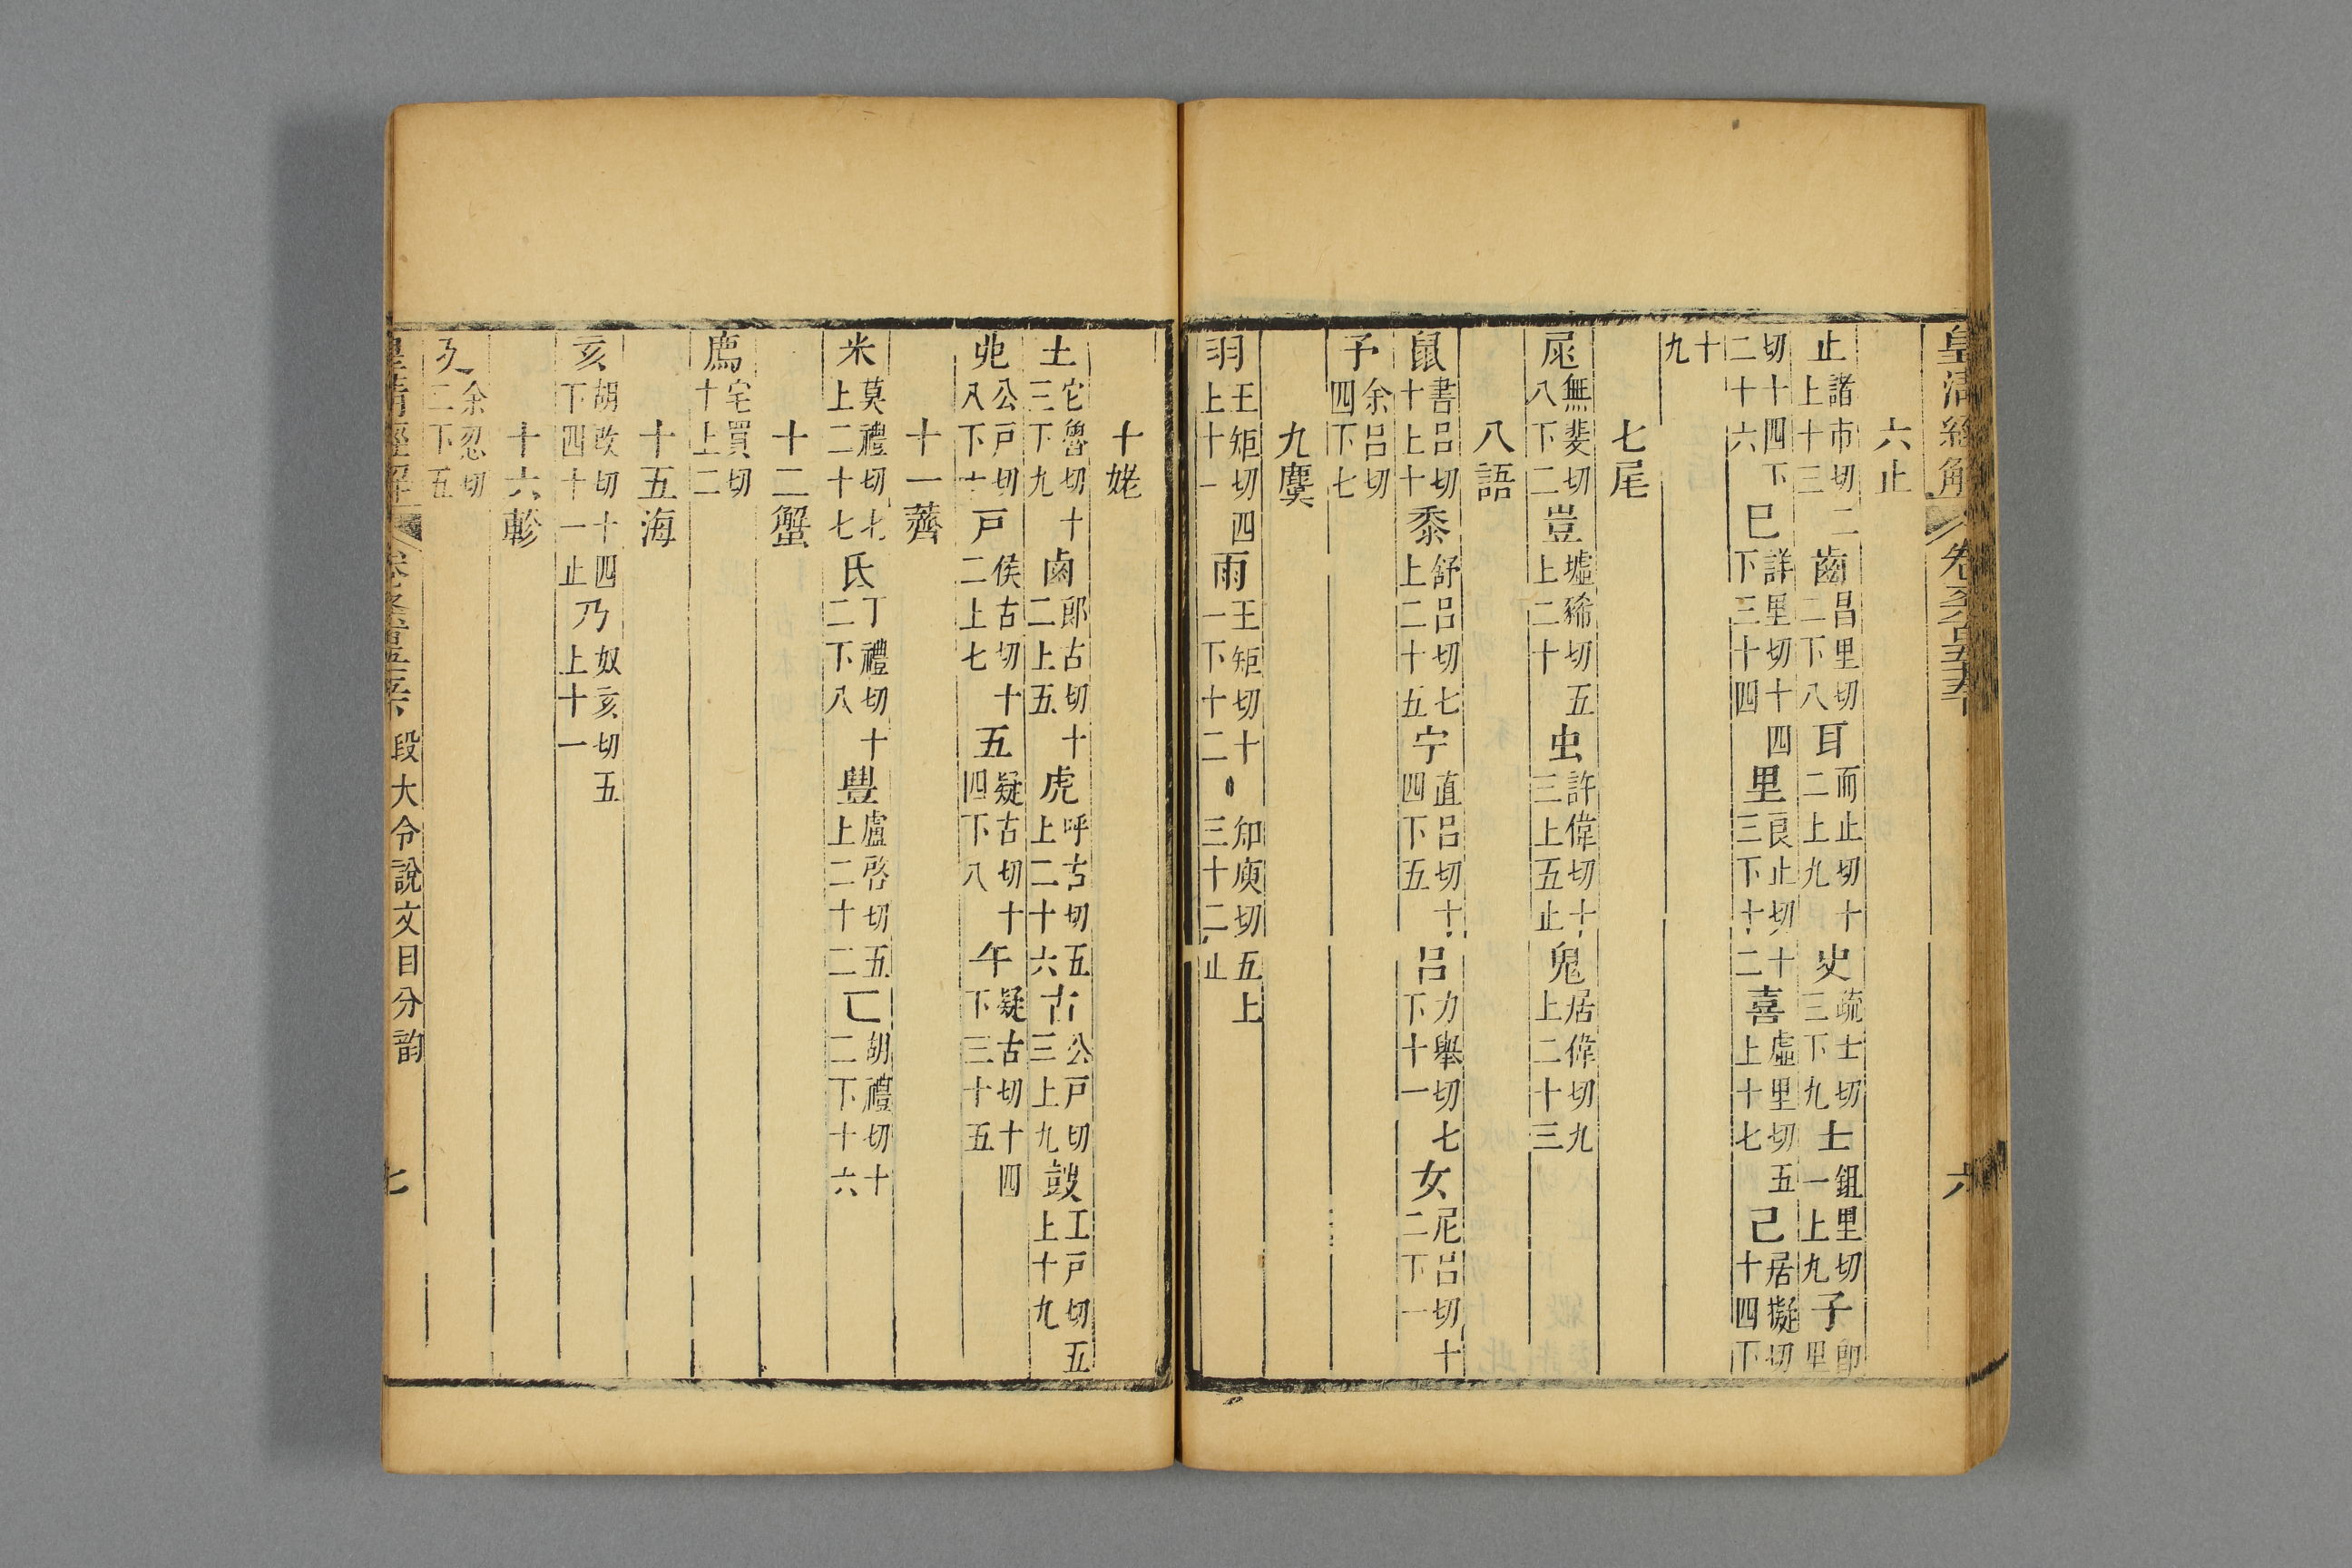 皇清經解 六
六止
止諸市切二上十三齒昌里切二下八耳而止切十二上九史疏士切三下九士鉏里切一上九子即里
切十四下二十六巳詳里切十四下三十四里良止切十三下十二喜虛里切五上十七己居擬切十四下
十九
七尾
尾無斐切八下二豈墟豨切五上二十虫許偉切十三上五止鬼居偉切九上二十三
八語
鼠書呂切十上十黍舒呂切七上二十五宁直呂切十四下五呂力舉切七下十一女尼呂切十二下一
予余呂切四下七
九麌
羽王矩切四上十一雨王矩切十一下十二丶知庾切五上三十二止
十姥
土它魯切十三下九鹵郎古切十二上五虎呼古切五上二十六古公戶切三上九鼓工戶切五上十九
𠑹公戶切八下七戶侯古切十二上七五疑古切十四下八午疑古切十四下三十五
十一薺
米莫禮切七上二十七氐丁禮切十二下八豊盧啓切五上二十二匸胡禮切十二下十六
十二蟹
廌宅買切十上二
十五海
亥胡改切十四下四十一止乃奴亥切五上十一
十六軫
廴余忍切二下五
皇清經解 段大令說文目分韵 七